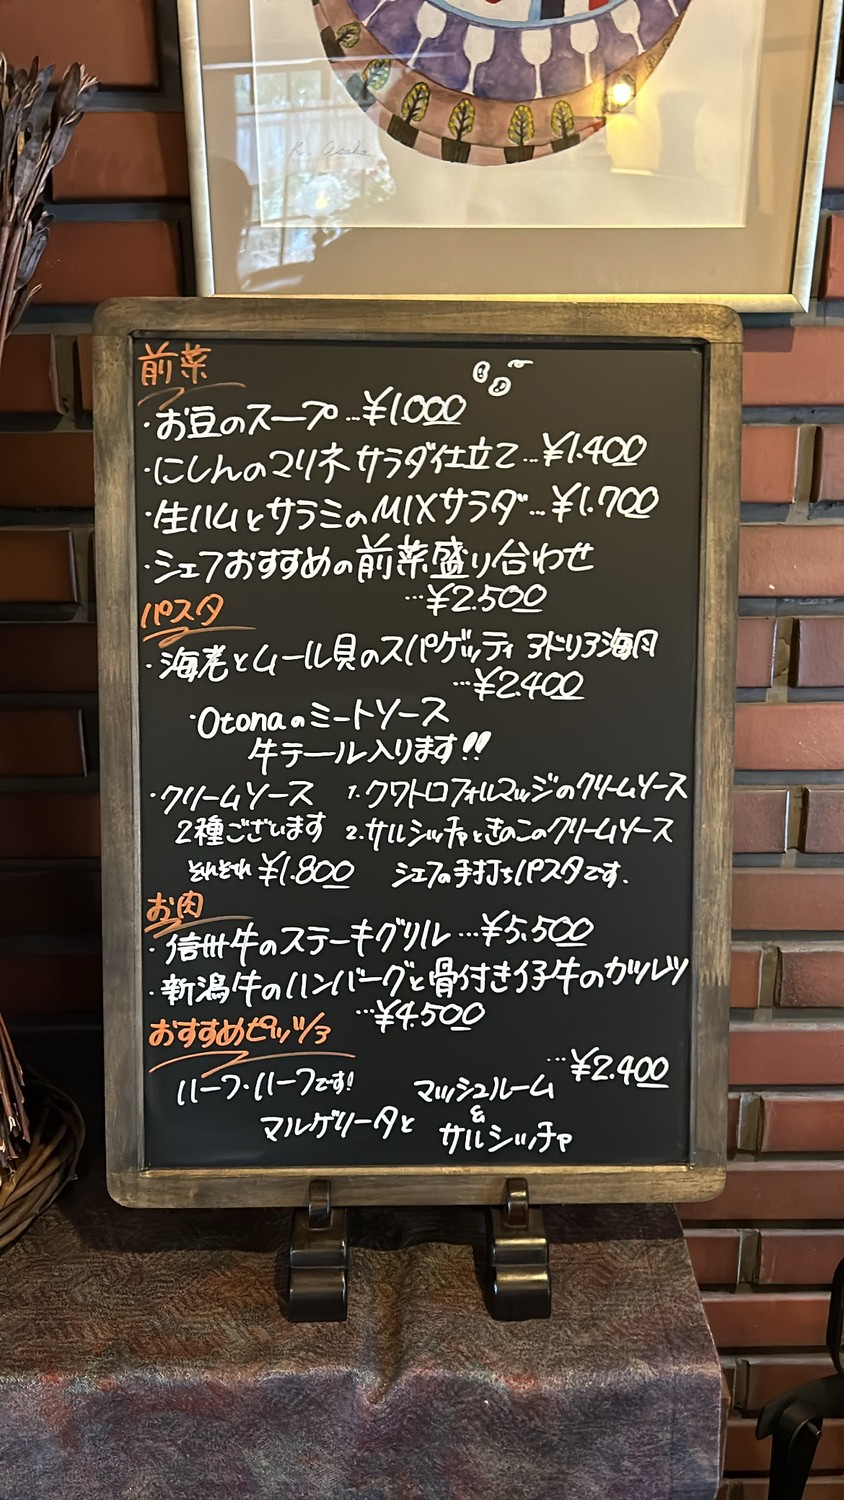 R. Asaka
前菜
・お豆のスープ…¥1.000
・にしんのマリネ サラダ仕立て…¥1.400
・生ハムとサラミのMIXサラダ…¥1.700
・シェフおすすめの前菜盛り合わせ
…¥2.500
パスタ
・海老とムール貝のスパゲッティ アドリア海風
…¥2.400
・Otonaのミートソース
牛テール入ります!!
・クリームソース 1.クワトロフォルマッジのクリームソース
2種ございます 2.サルシッチャときのこのクリームソース
それぞれ ¥1.800 シェフの手打ちパスタです.
お肉
・信州牛のステーキグリル…¥5.500
・新潟牛のハンバーグと骨付き仔牛のカツレツ
…¥4.500
おすすめピッツァ
…¥2.400
ハーフ・ハーフです! マッシュルーム
&
マルゲリータと サルシッチャ